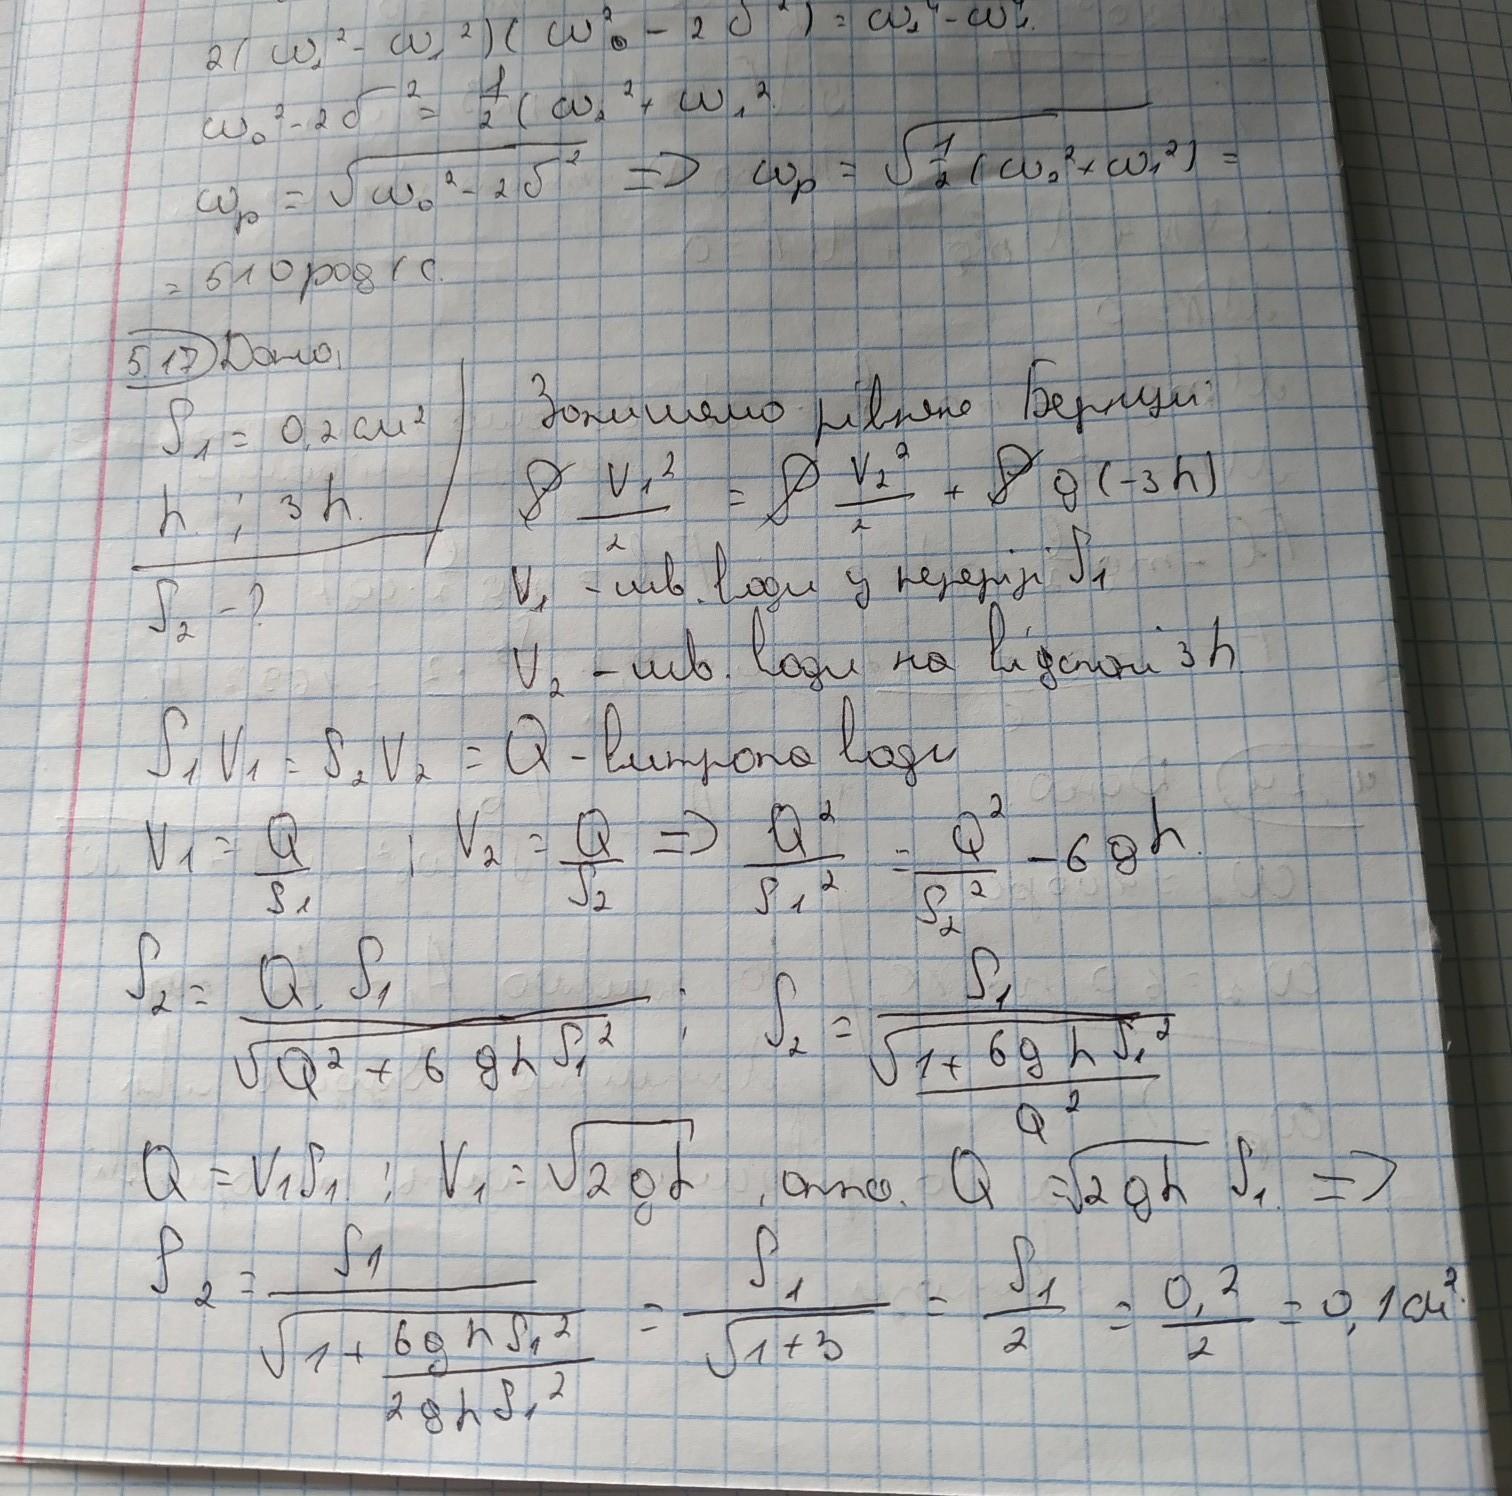 2(ω₂² - ω₁²)(ω₀² - 2δ²) = ω₂⁴ - ω₁⁴
ω₀² - 2δ² = 1/2 (ω₂² + ω₁²
ωp = √(ω₀² - 2δ²) => ωp = √(1/2 (ω₂² + ω₁²)) =
= 510 рад/с.
5.17) Дано:
S₁ = 0,2 см²
h ; 3h.
S₂ - ?
Запишемо рівняня Бернулі
ρ V₁²/2 = ρ V₂²/2 + ρ g(-3h)
V₁ - шв. води у перерізі S₁
V₂ - шв. води на відстані 3h
S₁V₁ = S₂V₂ = Q - витрата води
V₁ = Q/S₁ ; V₂ = Q/S₂ => Q²/S₁² = Q²/S₂² - 6gh.
S₂ = Q·S₁/√(Q² + 6ghS₁²) ; S₂ = S₁/√(1 + 6ghS₁²/Q²)
Q = V₁S₁ ; V₁ = √(2gh), отже. Q = √(2gh) S₁ =>
S₂ = S₁/√(1 + 6ghS₁²/2ghS₁²) = S₁/√(1+3) = S₁/2 = 0,2/2 = 0,1 см².